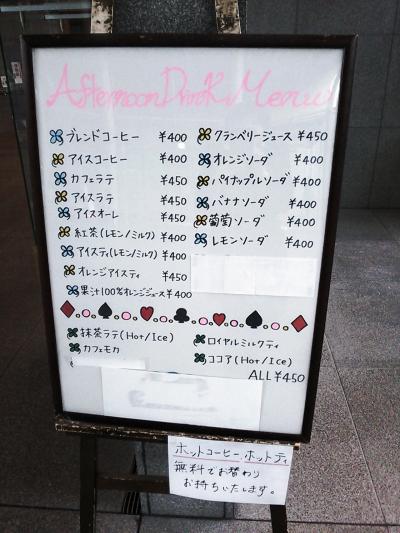 Afternoon Drink Menu
ブレンドコーヒー ¥400
アイスコーヒー ¥400
カフェラテ ¥450
アイスラテ ¥450
アイスオーレ ¥450
紅茶(レモン/ミルク) ¥400
アイスティ(レモン/ミルク) ¥400
オレンジアイスティ ¥450
果汁100%オレンジジュース ¥400
クランベリージュース ¥450
オレンジソーダ ¥400
パイナップルソーダ ¥400
バナナソーダ ¥400
葡萄ソーダ ¥400
レモンソーダ ¥400
抹茶ラテ(Hot/Ice)
カフェモカ
ロイヤルミルクティ
ココア(Hot/Ice)
ALL ¥450
ホットコーヒー、ホットティ
無料でお替わり
お持ちいたします。